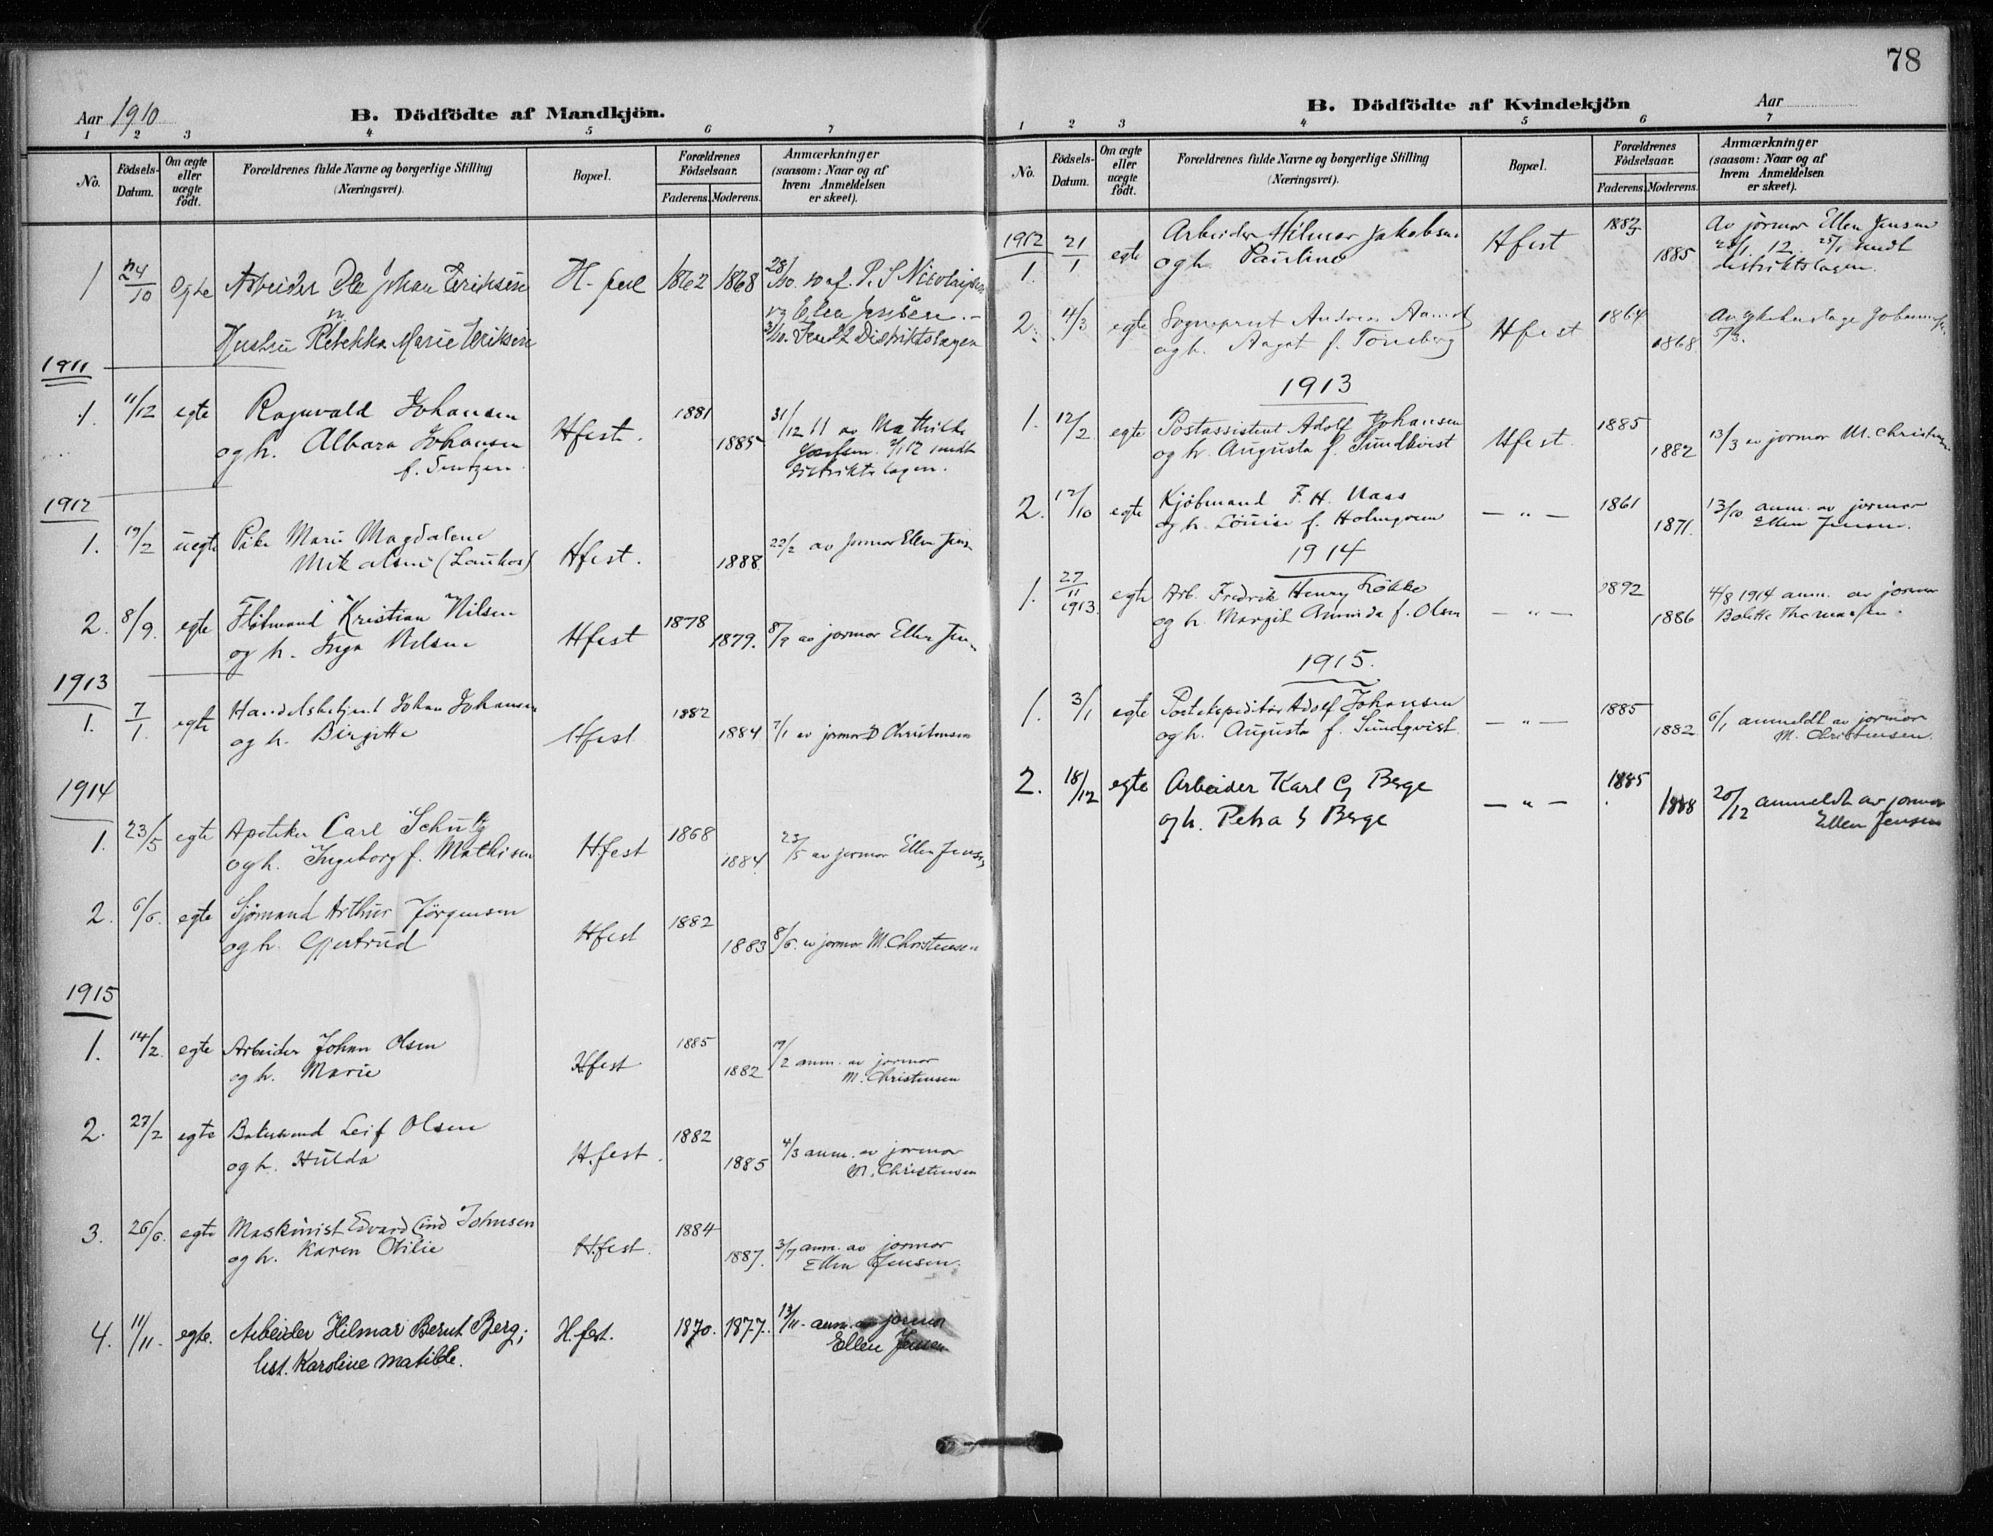 Aar 1910
B. Dödfödte af Mandkjön.
1 2 3 4 5 6 7
No.
Födsels-
Datum.
Om ægte
eller
uægte
födt.
Forældrenes fulde Navne og borgerlige Stilling
(Næringsvei).
Bopæl.
Forældrenes
Födselsaar.
Faderens. Moderens.
Anmærkninger
(saasom: Naar og af
hvem Anmeldelsen
er skeet).
1 24/10 Egte Arbeider Ole Johan Eriksen H-fest 1862 1868 28/10
Hustru Rebekka Marie Eriksen 31/10. Sendt Distriktslægen
1911
1. 11/12 egte Ragnvald Johansen Hfest. 1881 1885 31/12 11 av Mathilde
og h. Albara Johansen
f. sendt
distriktslægen.
1912
1. 19/2 uegte Pike Marie Magdalene Hfest. 1888. 22/2 av jormor Ellen Jens
Mikalsen
2. 8/9. egte Flötmand Kristian Nilsen Hfest 1878 1879. 8/9 av jormor Ellen Jen
og h. Inga Nilsen
1913
1. 7/1. egte Handelsbetjent Johan Johansen Hfest 1882 1884 7/1 av jormor Christensen
og h. Birgitte
1914
1. 23/5 egte Apoteker Carl Schultz Hfest 1868 1884 23/5 av jormor Ellen Jensen
og h. Ingeborg f. Mathisen
2. 6/6. egte Sjömand Arthur Jörgensen Hfest 1882 1883 8/6. av jormor M. Christensen
og h. Gjertrud
1915
1. 14/2. egte Arbeider Johan Olsen Hfest 1885 1882 19/2 anm. av jormor
og h. Marie M. Christensen
2. 27/2 egte Leif Olsen H.fest. 1882 1885 4/3 anm. av jormor
og h. Hulda M. Christensen
3. 26/6. egte Maskinist Edvard Johnsen Hfest. 1884 1887. 3/7 anm. av jormor
og h. Karen Otilie Ellen Jensen.
4. 11/11. egte. Arbeider Hilmar Bernt Berg; H.fest. 1870. 1877. 13/11. anm. av jormor
hst. Karoline Matilde. Ellen Jensen
78
B. Dödfödte af Kvindekjön
Aar
1 2 3 4 5 6 7
No.
Födsels-
Datum.
Om ægte
eller
uægte
födt.
Forældrenes fulde Navne og borgerlige Stilling
(Næringsvei).
Bopæl.
Forældrenes
Födselsaar.
Faderens. Moderens.
Anmærkninger
(saasom: Naar og af
hvem Anmeldelsen
er skeet).
1912
1. 21/1 egte Arbeider Hilmar Jakobsen Hfest 1883 1885 Av jormor Ellen Jensen
og h. Pauline 12. 25/1 sendt
distriktslægen.
2. egte Sogneprest Andreas Hfest 1864 1868.
og h. Aagot f. Tonsberg
1913
1. 12/2. egte Postassistent Adolf Johansen Hfest. 1885 1882 13/3 av jormor M. Christensen
og h. Augusta f. Sundkvist
2. 12/10 egte Kjöbmand F. H. Maas — " — 1861 1871. 13/10 anm. av jormor
og h. Louise f. Holmgren Ellen Jensen.
1914
1. 27/11 1913. egte Arb. Fredrik Henry Lökke — " — 1892 1886 4/8 1914 anm. av jormor
og h. Margit Aminda f. Olsen Bolette Thomassen.
1915.
1. 3/1 egte Postekspeditör Adolf Johansen — " — 1885 1882 6/1 anmeldt av jormor
og h. Augusta f. Sundqvist. M. Christensen.
2. 18/12 egte Arbeider Karl G Berge — " — 1885 1888 20/12 anmeldt av jormor
og h. Petra S Berge Ellen Jensen